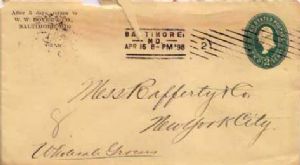 After 5 days, return to
W. W. BOYER & CO.
BALTIMORE, MD.
BALTIMORE,
MD.
APR 16 8-PM '98
2
Mess Rafferty & Co
New York City.
Wholesale Grocers